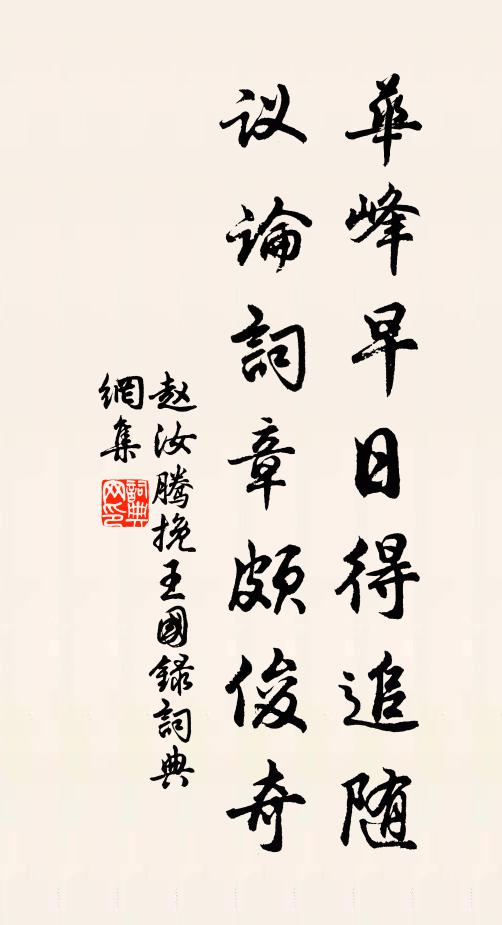 華峰早日得追随
议論詞章頗俊奇
赵汝騰挽王國録詞典
網集
詞典
网印